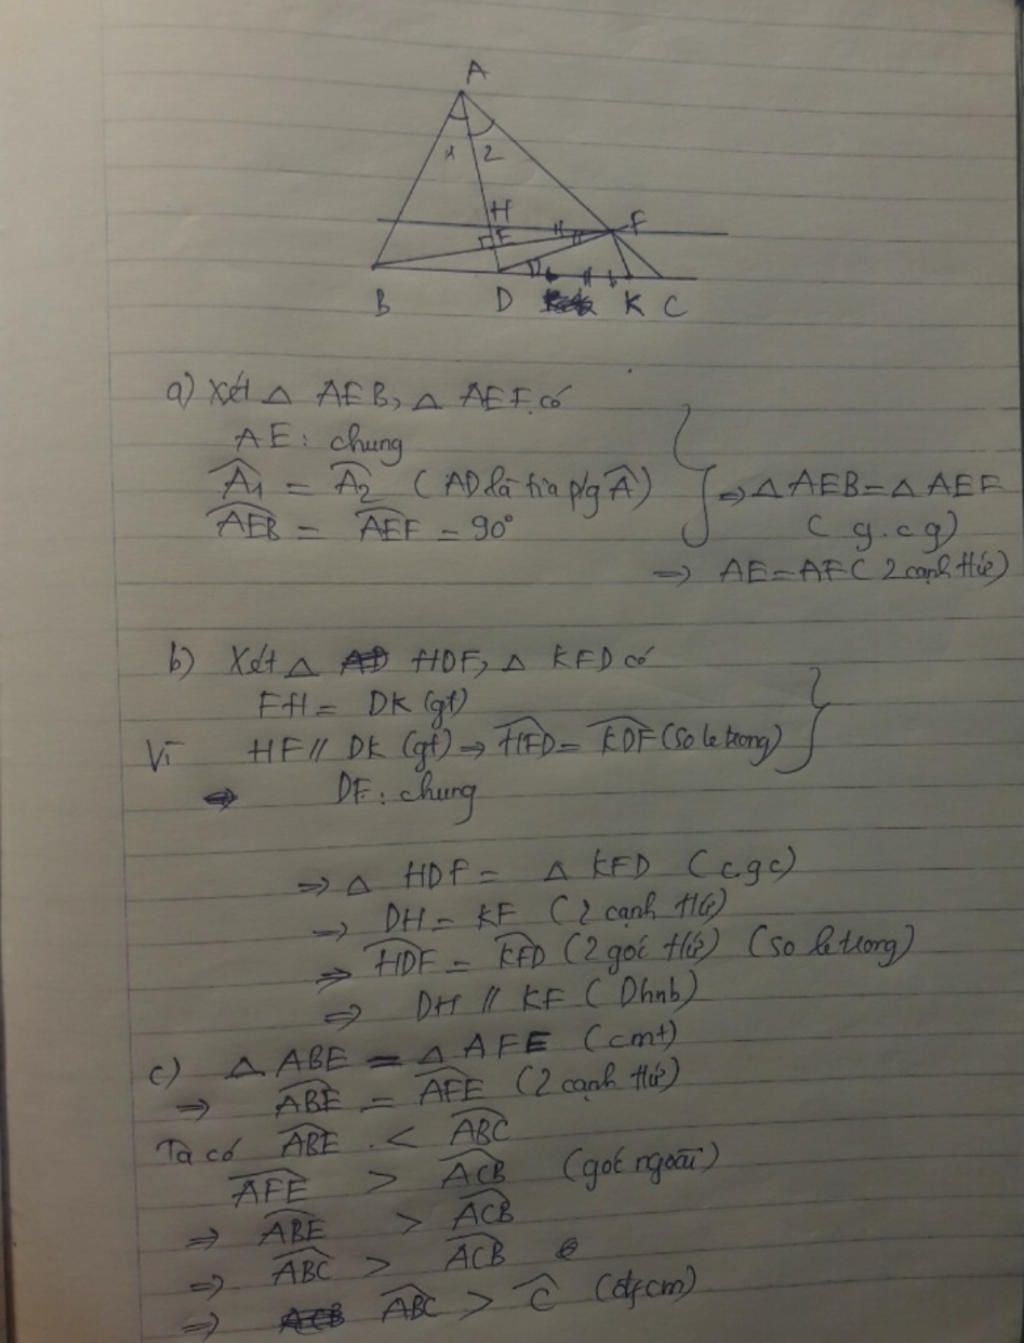 A
1 2
H
E
F
B D K C
a) Xét △ AEB, △ AEF có
AE: chung
Â1 = Â2 (AD là tia p/g Â)
AEB = AEF = 90°
⇒ △ AEB = △ AEF
(g.c.g)
⇒ AE = AF (2 cạnh t/ứ)
b) Xét △ HDF, △ KFD có
FH = DK (gt)
Vì HF // DK (gt) ⇒ HFD = KDF (so le trong)
⇒ DF: chung
⇒ △ HDF = △ KFD (c.g.c)
⇒ DH = KF (2 cạnh t/ứ)
⇒ HDF = KFD (2 góc t/ứ) (so le trong)
⇒ DH // KF (Dhnb)
c) △ ABE = △ AFE (cmt)
⇒ ABE = AFE (2 cạnh t/ứ)
Ta có ABE < ABC
AFE > ACB (góc ngoài)
⇒ ABE > ACB
⇒ ABC > ACB
⇒ ABC > C (đpcm)